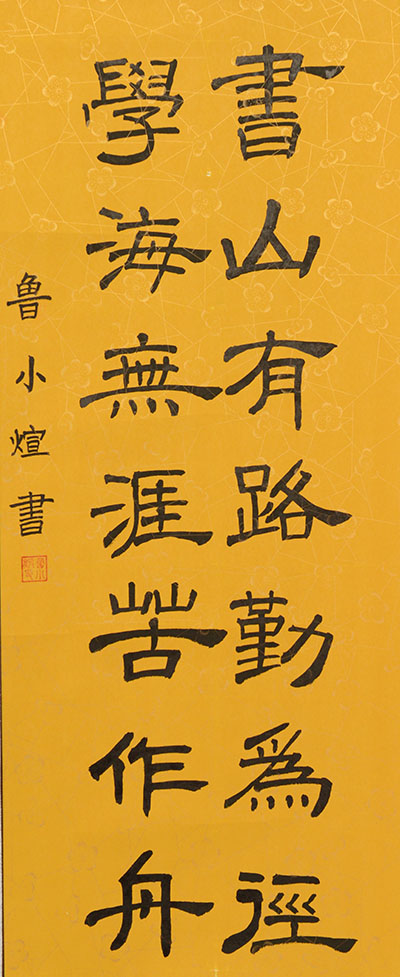 書山有路勤為徑
學海無涯苦作舟
魯小煊書